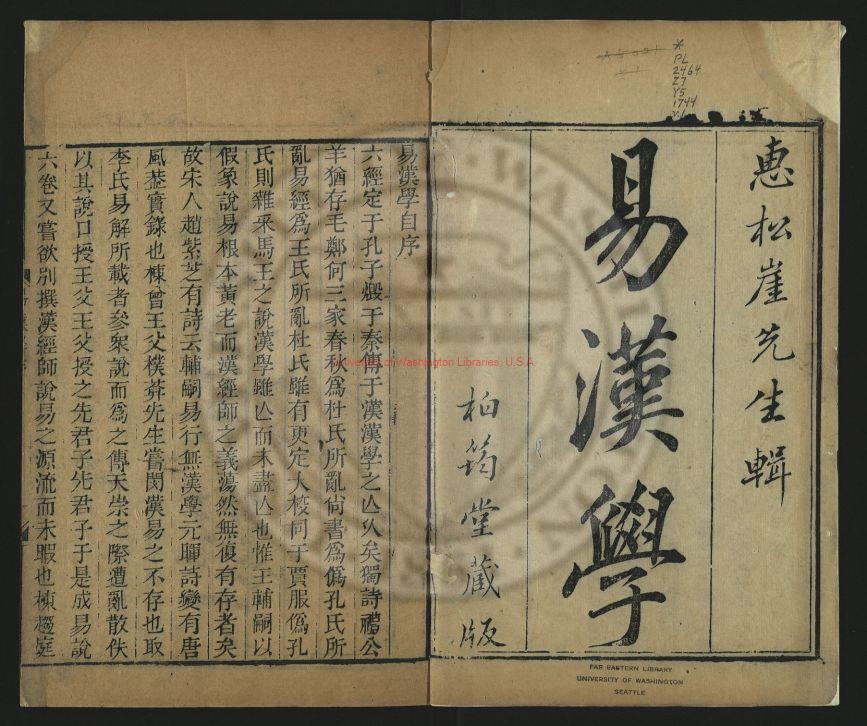 惠松崖先生輯
易漢學
柏筠堂藏版
PL
2464
Z7
Y5
1744
v.1
FAR EASTERN LIBRARY
UNIVERSITY OF WASHINGTON
SEATTLE
University of Washington Libraries, U.S.A.
易漢學自序
六經定于孔子燬于秦傳于漢漢學之亾久矣獨詩禮公
羊猶存毛鄭何三家春秋爲杜氏所亂尙書爲僞孔氏所
亂易經爲王氏所亂杜氏雖有更定大校同于賈服僞孔
氏則雜采馬王之說漢學雖亾而未盡亾也惟王輔嗣以
假象說易根本黃老而漢經師之義蕩然無復有存者矣
故宋人趙紫芝有詩云輔嗣易行無漢學元暉詩變有唐
風葢實錄也棟曾王父樸菴先生嘗閔漢易之不存也取
李氏易解所載者參衆說而爲之傳天崇之際遭亂散佚
以其說口授王父王父授之先君子先君子于是成易說
六卷又嘗欲別撰漢經師說易之源流而未暇也棟趨庭